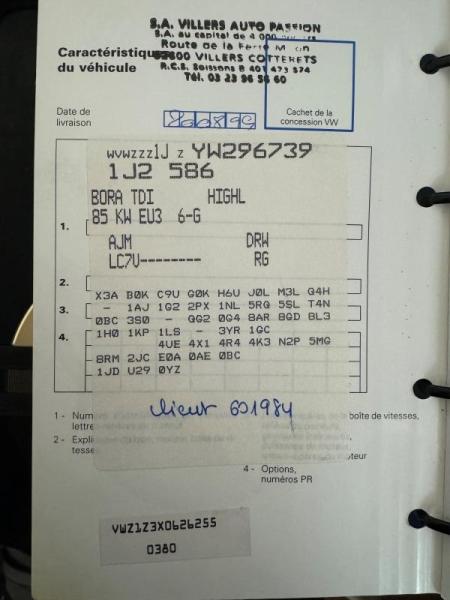 S.A. VILLERS AUTO PASSION
S.A. au capital de 4 000
Route de la Ferté
02600 VILLERS COTTERETS
R.C.S. Soissons B 401 473 574
Tél. 03 23 96 56 60
Caractéristiques
du véhicule
Date de
livraison
Cachet de la
concession VW
WVWZZZ1J Z YW296739
1J2 586
BORA TDI HIGHL
85 KW EU3 6-G
1.
AJM DRW
LC7V-------- RG
2.
X3A B0K C9U G0K H6U J0L M3L G4H
3.
- 1AJ 1G2 2PX 1NL 5RG 5SL T4N
0BC 3S0 - GG2 0G4 8AR 8GD BL3
4.
1H0 1KP 1LS - 3YR 1GC
4UE 4X1 4R4 4K3 N2P 5MG
8RM 2JC E0A 0AE 0BC
1JD U29 0YZ
client 601984
1 - Num
boîte de vitesses,
lettre
2 - Expli
tesse
oteur
4 - Options,
numéros PR
VWZ1Z3X0626255
0380